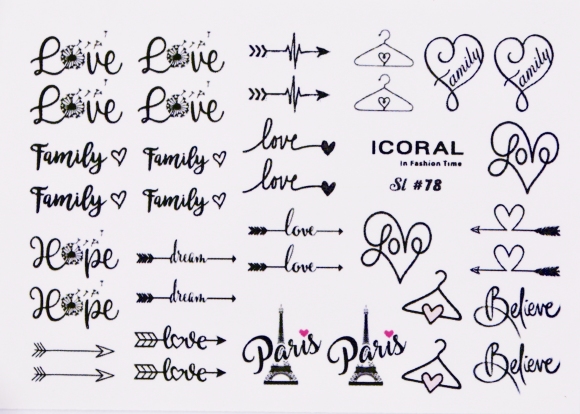 Love Love
Love Love
Family Family
Family Family
Hope
Hope
dream
dream
love
love
love
love
love
love
Paris Paris
Family Family
ICORAL
In Fashion Time
Sl #78
Love
Love
Believe
Believe